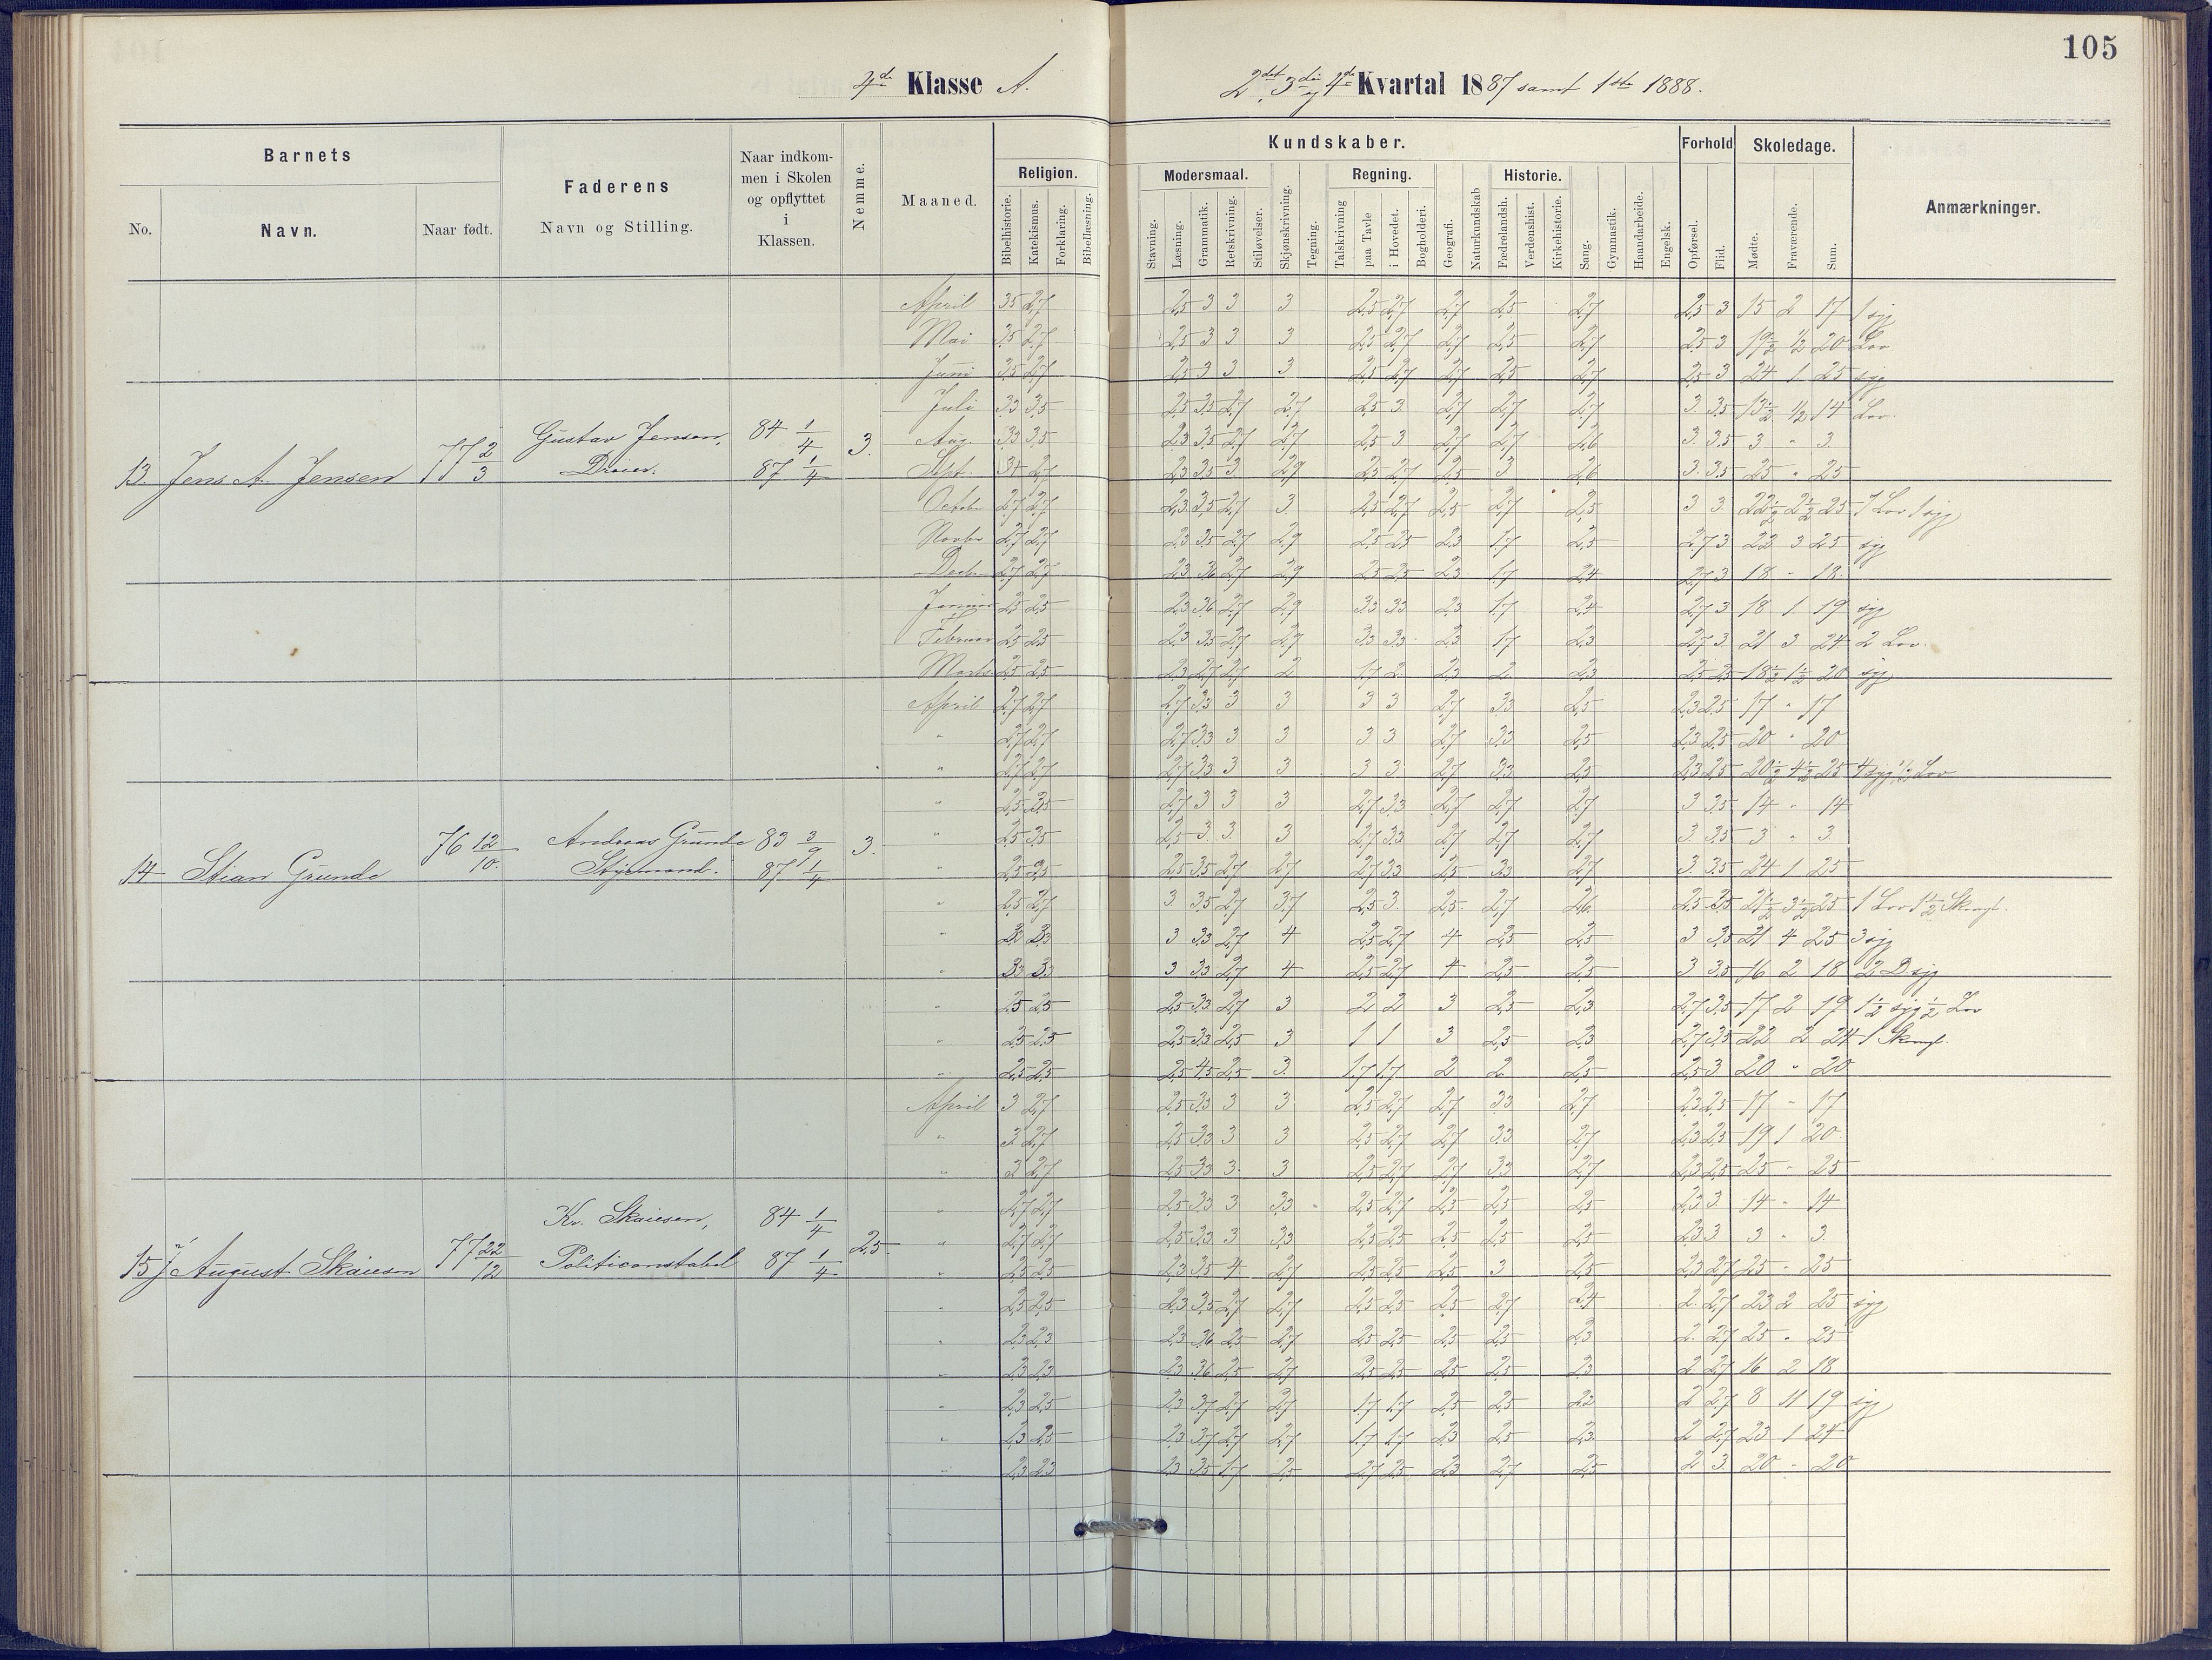 105
4de Klasse A.
2det, 3die og 4de Kvartal 1887 samt 1ste 1888.
Barnets
No.
Navn.
Naar født.
Faderens
Navn og Stilling.
Naar indkom-
men i Skolen
og opflyttet
i
Klassen.
Nemme.
Maaned.
Kundskaber.
Religion.
Bibelhistorie.
Katekismus.
Forklaring.
Bibellæsning.
Modersmaal.
Stavning.
Læsning.
Grammatik.
Retskrivning.
Stiløvelser.
Skjønskrivning.
Tegning.
Regning.
Talskrivning
paa Tavle
i Hovedet.
Bogholderi.
Geografi.
Naturkundskab
Historie.
Fædrelandsh.
Verdenshist.
Kirkehistorie.
Sang.
Gymnastik.
Haandarbeide.
Engelsk.
Forhold
Opførsel.
Flid.
Skoledage.
Mødte.
Fraværende.
Sum.
Anmærkninger.
April 3,5 2,7 2,5 3 3 3 2,5 2,7 2,7 2,5 2,7 2,5 3 15 2 17 1 syg
Mai 3,5 2,7 2,5 3 3 3 2,5 2,7 2,7 2,5 2,7 2,5 3 19½ ½ 20 Lov
Juni 3,5 2,7 2,5 3 3 3 2,5 2,7 2,7 2,5 2,7 2,5 3 24 1 25 syg
Juli 3,3 3,5 2,5 3,5 2,7 2,7 2,5 3 2,7 2,7 2,7 3 3,5 13½ ½ 14 Lov.
13. Jens A. Jensen 77 2/3 Gustav Jensen, Dreier. 84 1/4 87 1/4 3.
Aug. 3,3 3,5 2,3 3,5 2,7 2,7 2,5 3 2,7 2,7 2,6 3 3,5 3 " 3
Sept. 2,7 2,3 3,5 3 2,9 2,5 2,7 2,5 3 2,6 3 3,5 25 " 25
Octobr 2,7 2,7 2,3 3,5 2,7 3 2,5 2,7 2,5 2,7 2,5 3 3 22½ 2½ 25 1 Lov 1 syg
Novbr 2,7 2,7 2,3 3,5 2,7 2,9 2,5 2,5 2,3 1,7 2,5 2,7 3 22 3 25 syg
Decbr 2,7 2,7 2,3 3,6 2,7 2,9 2,5 2,5 2,3 1,7 2,4 2,7 3 18 " 18
Januar 2,5 2,5 2,3 3,6 2,7 2,9 3,3 3,3 2,3 1,7 2,4 2,7 3 18 1 19 syg
Februar 2,5 2,5 2,3 3,5 2,7 2,7 3,3 3,3 2,3 1,7 2,3 2,7 3 21 3 24 2 Lov.
Marts 2,5 2,5 2,3 2,7 2,7 2 1,7 2 2,3 2 2,3 2,5 2,5 18½ 1½ 20 syg
April 2,7 2,7 2,7 3,3 3 3 3 3 2,7 3,3 2,5 2,3 2,5 17 " 17
" 2,7 2,7 2,7 3,3 3 3 3 3 2,7 3,3 2,5 2,3 2,5 20 " 20
" 2,7 2,7 2,7 3,3 3 3 3 3 2,7 3,3 2,5 2,3 2,5 20½ 4½ 25 4 syg, ½ Lov
" 2,5 3,5 2,7 3 3 3 2,7 3,3 2,7 2,7 2,7 3 3,5 14 " 14
14 Stian Grunde 76 12/10. Andreas Grunde Styrmand. 83 3/9 87 1/4 3.
" 2,5 3,5 2,5 3 3 3 2,7 3,3 2,7 2,7 2,7 3 3,5 3 " 3
" 2,5 2,5 2,5 3,5 2,7 2,7 2,7 3,3 2,5 3,3 2,7 3 3,5 24 1 25
" 2,5 2,7 3 3,5 2,7 3,7 2,5 3 2,5 2,7 2,6 2,5 3,5 21½ 3½ 25 1 Lov 1½
" 3 3,3 2,7 4 2,5 2,7 4 2,5 2,5 3 3,5 21 4 25 3 syg
" 3,3 3,3 3 3,3 2,7 4 2,5 2,7 4 2,5 2,5 3 3,5 16 2 18 2 D syg
" 2,5 2,5 2,5 3,3 2,7 3 2 2 3 2,5 2,3 2,7 3,5 17 2 19 1½ syg ½ Lov
" 2,5 2,5 2,5 3,3 2,5 3 1 1 3 2,5 2,3 2,7 3,5 22 2 24 1
" 2,5 2,5 2,5 4,5 2,5 3 1,7 1,7 2 2 2,5 2,5 3 20 " 20
April 3 2,7 2,5 3,3 3 3 2,5 2,7 2,7 3,3 2,7 2,3 2,5 17 " 17
" 3 2,7 2,5 3,3 3 3 2,5 2,7 2,7 3,3 2,7 2,3 2,3 19 1 20
" 3 2,7 2,5 3,3 3 3 2,5 2,7 2,7 3,3 2,7 2,3 2,5 25 " 25
" 2,7 2,7 2,5 3,3 3 3,3 2,5 2,7 2,5 2,5 2,5 2,3 3 14 " 14
15 August Skaiesen 77 22/12 Kr. Skaiesen, Politiconstabel 84 1/4 87 1/4 2,5.
" 2,7 2,7 2,5 3,3 3 3,3 2,5 2,5 2,5 2,5 2,5 2,3 3 3 " 3
" 2,5 2,5 2,3 3,5 4 2,7 2,5 2,5 2,5 3 2,5 2,3 2,7 25 " 25
" 2,5 2,5 2,3 3,5 2,7 2,7 2,5 2,5 2,5 2,7 2,4 2 2,7 23 2 25 syg
" 2,3 2,3 2,3 3,6 2,5 2,7 2,5 2,5 2,5 2,5 2,3 2 2,7 25 " 25
" 2,3 2,3 2,3 3,6 2,5 2,7 2,5 2,5 2,5 2,5 2,3 2 2,7 16 2 18
" 2,3 2,5 2,3 3,7 2,7 2,7 1,7 1,7 2,5 2,5 2,2 2 2,7 8 11 19 syg
" 2,3 2,5 2,3 3,7 2,7 2,7 1,7 1,7 2,3 2,5 2,3 2 2,7 23 1 24
" 2,3 2,3 2,3 3,5 1,7 2,5 2,7 2,5 2,3 2,7 2,5 2 3 20 " 20